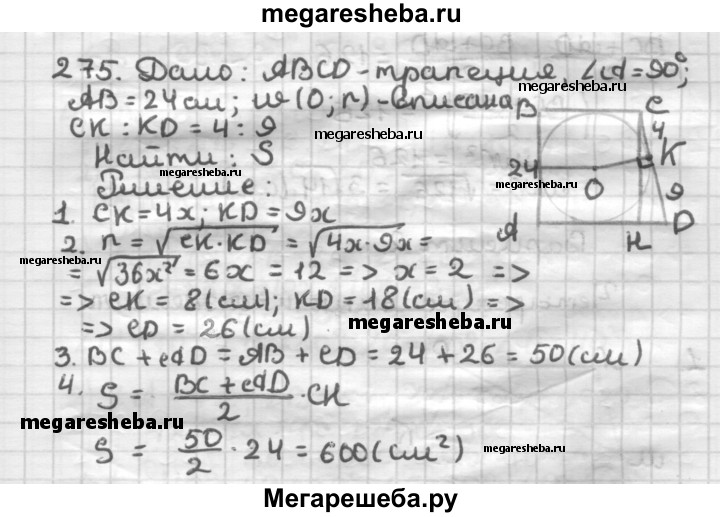 megaresheba.ru
275. Дано: ABCD - трапеция, ∠A = 90°;
AB = 24 см; w (O; r) - вписана
CK : KD = 4 : 9
megaresheba.ru
Найти: S
megaresheba.ru
Решение:
megaresheba.ru
B C 4 K 24 O 9 A H D
1. CK = 4x; KD = 9x
2. r = √CK·KD = √4x·9x =
megaresheba.ru
= √36x² = 6x = 12 => x = 2 =>
=> CK = 8 (см); KD = 18 (см) =>
=> CD = 26 (см)
megaresheba.ru
3. BC + AD = AB + CD = 24 + 26 = 50 (см)
4. S = BC + AD / 2 · CH
megaresheba.ru
S = 50 / 2 · 24 = 600 (см²)
megaresheba.ru
Мегарешеба.ру